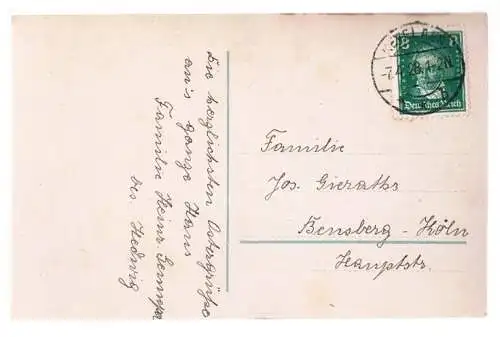 Die herzlichsten Ostergrüße
an's ganze Haus
Familie Heinr.
bes. Hedwig
8 8
-7.4.28.1-2N
Deutsches Reich
Familie
Jos. Gieraths
Bensberg-Köln
Hauptstr.